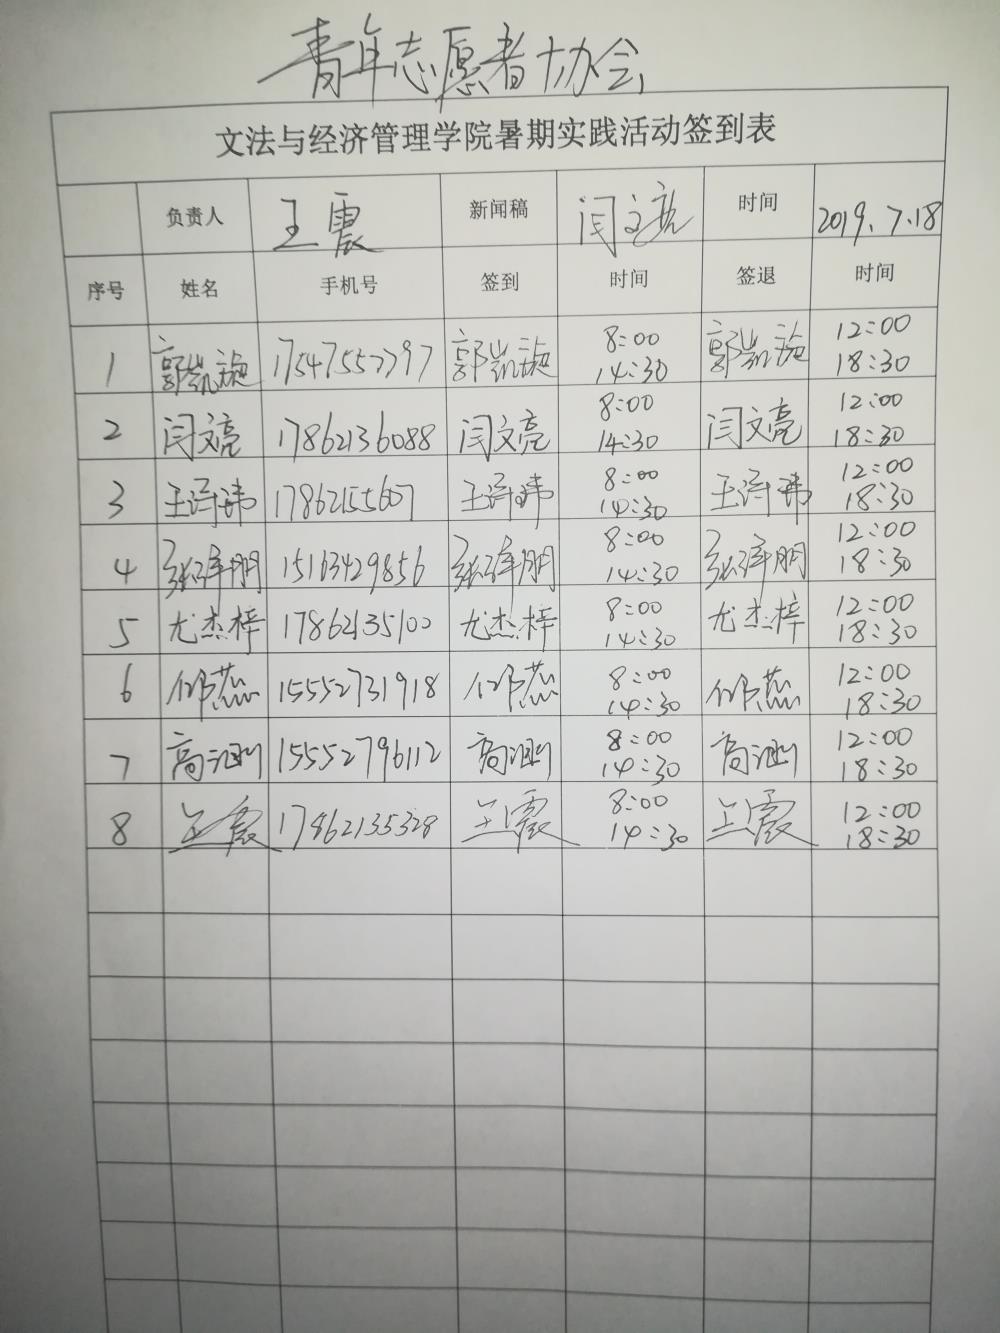 青年志愿者协会
文法与经济管理学院暑期实践活动签到表
负责人 王震 新闻稿 闫文亮 时间 2019.7.18
序号 姓名 手机号 签到 时间 签退 时间
1 郭凯旋 17547557797 郭凯旋 8:00 14:30 郭凯旋 12:00 18:30
2 闫文亮 17862136088 闫文亮 8:00 14:30 闫文亮 12:00 18:30
3 王 17862155607 王 8:00 14:30 王 12:00 18:30
4 张 朋 15163429856 张 朋 8:00 14:30 张 朋 12:00 18:30
5 尤杰梓 17862135100 尤杰梓 8:00 14:30 尤杰梓 12:00 18:30
6 燕 15552731918 燕 8:00 14:30 燕 12:00 18:30
7 高涵 15552796112 高涵 8:00 14:30 高涵 12:00 18:30
8 王震 17862135328 王震 8:00 14:30 王震 12:00 18:30